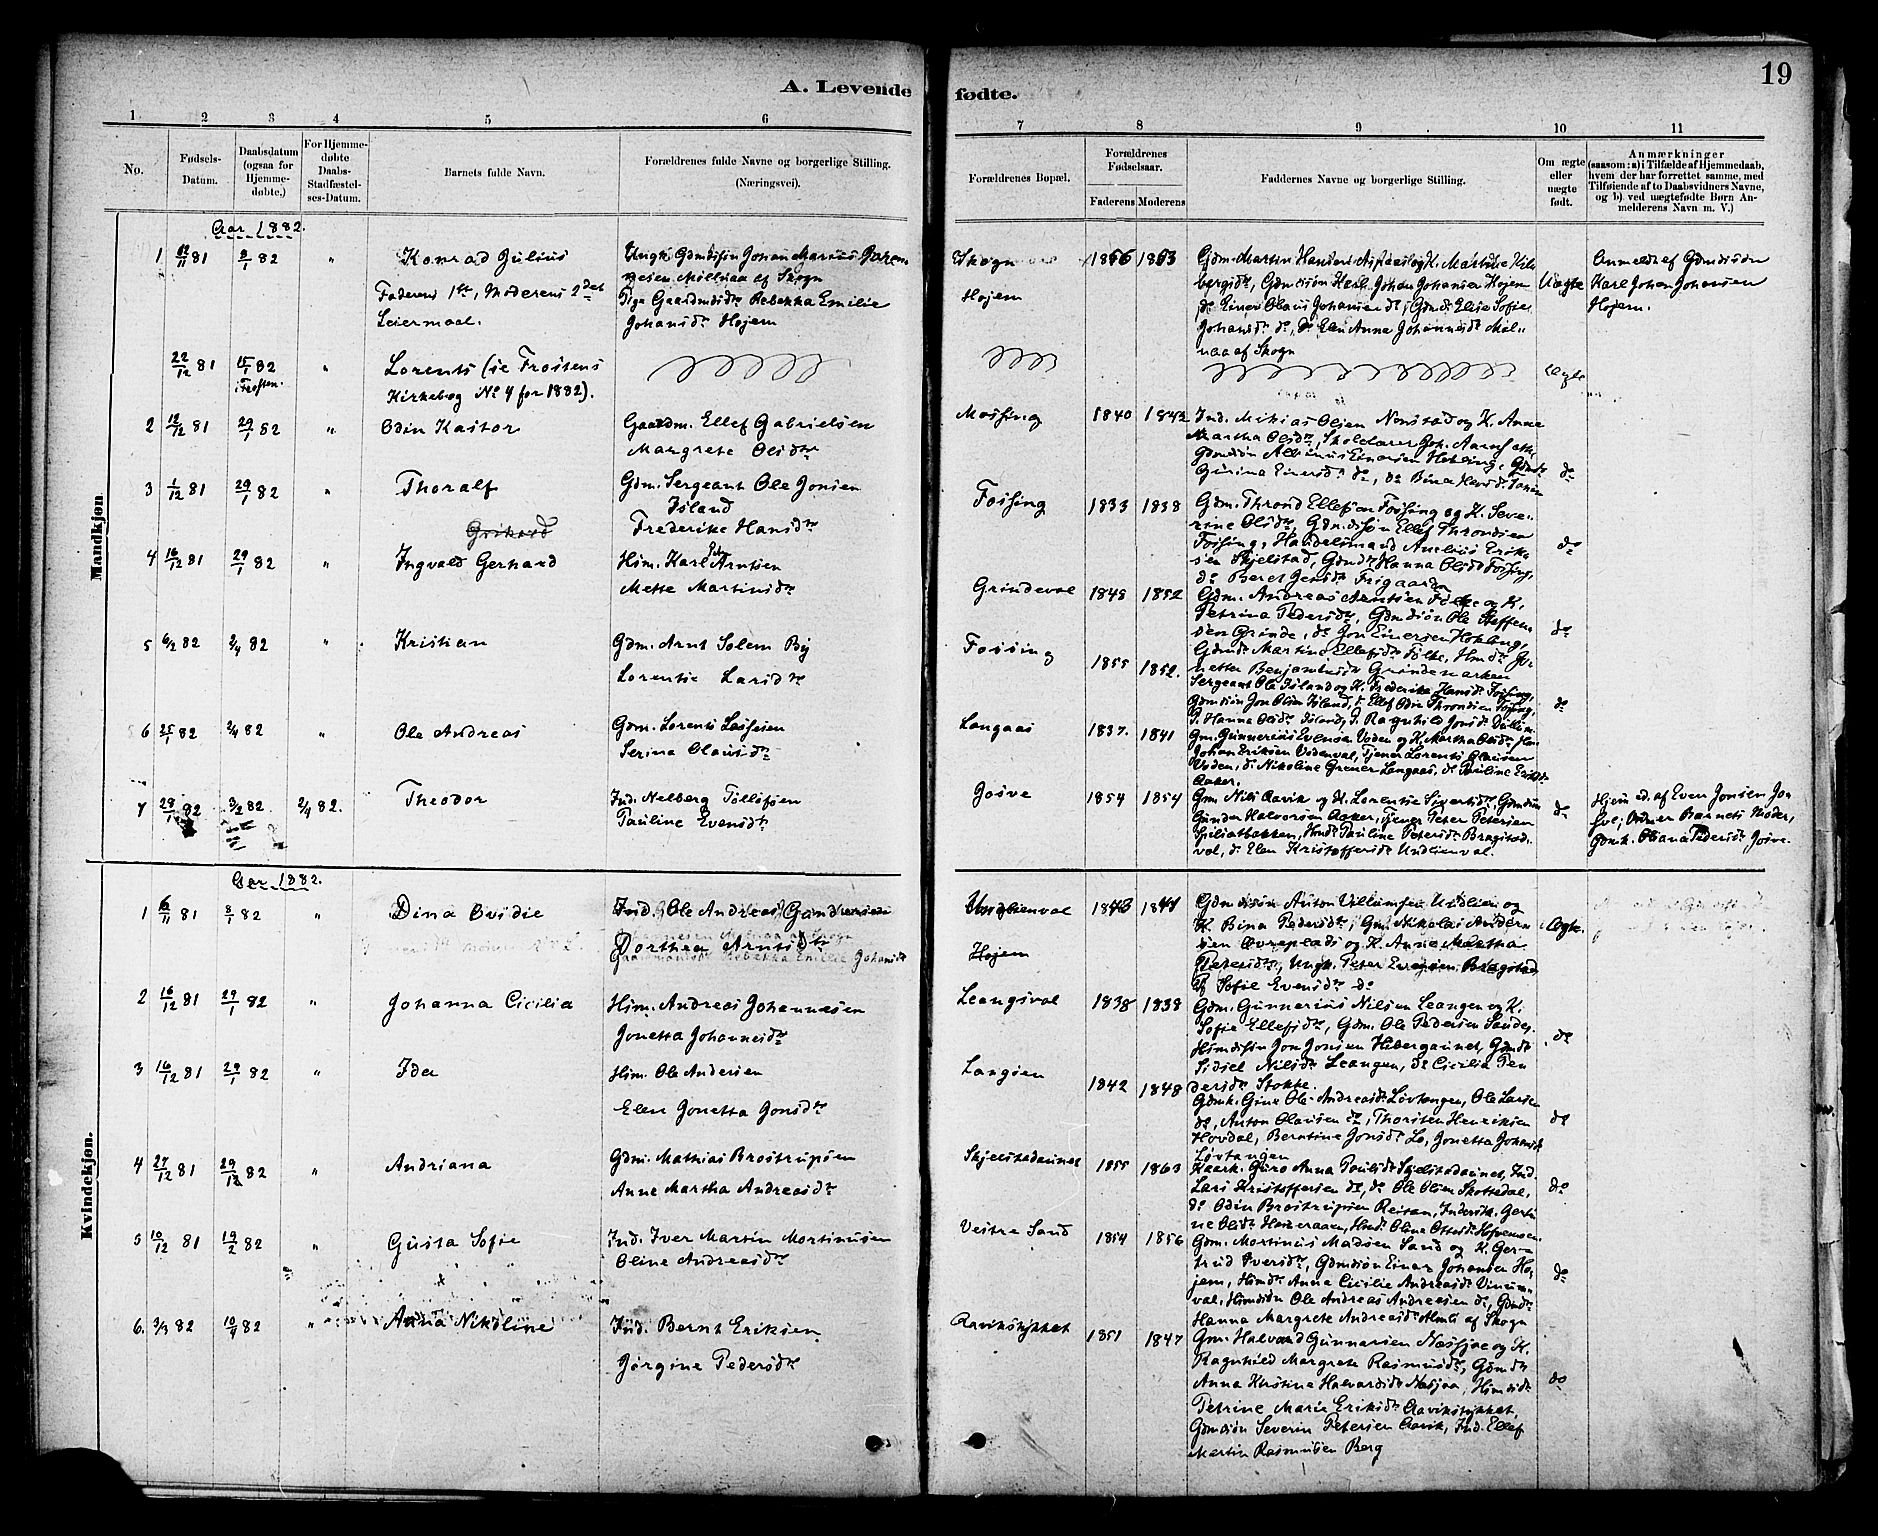 A. Levende
fødte.
19
1 2 3 4 5 6
7 8 9 10 11
No.
Fødsels-
Datum.
Daabsdatum
(ogsaa for
Hjemme-
døbte.)
For Hjemme-
døbte
Daabs-
Stadfæstel-
ses-Datum.
Barnets fulde Navn.
Forældrenes fulde Navne og borgerlige Stilling.
(Næringsvei).
Forældrenes Bopæl.
Forældrenes
Fødselsaar.
Faderens Moderens
Faddernes Navne og borgerlige Stilling.
Om ægte
eller
uægte
født.
Anmærkninger
(saasom: a) i Tilfælde af Hjemmedaab,
hvem der har forrettet samme, med
Tilføiende af to Daabsvidners Navne,
og b) ved uægtefødte Børn An-
melderens Navn m. V.)
Mandkjøn
Aar 1882.
1 12/11 81 8/1 82 " Konrad Julius
Faderens 1st, Moderens 2det
Leiermaal.
Ungk. Gdmdssøn Johan Marius
af Skogn
Pige Gaardmdsdtr Rebekka Emilie
Johansdtr Højem
Skogn
Højem
1856 1853
Gdm. Martin Hansen
Gdmdssøn Karl Johan Johansen Højem
do Einer Olaus Johansen do, Gdmdtr Elise Sofie
Johansdtr do, do Elen Anna Johannesdtr
af Skogn
Uægte
Anmeldt af Gdmdssøn
Karl Johan Johansen
Højem.
22/12 81 15/1 82 i Frosten. " Lorents (se Frostens
Kirkebog No 4 for 1882).
Ægte
2 12/12 81 29/1 82 " Odin Kastor
Gaardm. Ellef Gabrielsen
Margrete Olsdtr
Mossing
1840 1842
Ind. Mikias Olsen Nonstad og K. Anne
Martha Olsdtr, Skolelærer Joh.
Gdmdssøn Albinus Einersen Hokling, Gdmdtr
Gurina Einersdtr do, do Bina
do
3 1/12 81 29/1 82 " Thoralf
Gdm. Sergeant Ole Jonsen
Island
Frederike Hansdtr
Fossing
1833 1838
Gdm. Thrond Ellefsen Fossing og K. Seve-
rine Olsdtr, Gdmdssøn Ellef Throndsen
Fossing, Handelsmand Aurelius Erik-
sen Skjelstad, Gdmdtr Hanna Olsdtr Fossing,
do Beret Jensdtr Frigaarden
do
4 16/12 81 29/1 82 " Ingvald Gerhard
Hsm. Karl Arntsen
Mette Martinsdtr
Grindeval
1848 1852
Gdm. Andreas Arntsen Følke og K.
Petrina Pedersdtr, Gdmdssøn Ole Steffen-
sen Grinde, do Jon Einersen Hokling,
Gdmdtr Martine Ellefsdtr Følke, Hmdtr Jo-
netta Benjaminsdtr Grindemarken
do
5 6/2 82 2/4 82 " Kristian
Gdm. Arnt Solem By
Lorentse Larsdtr
Fossing
1855 1852.
Sergeant Ole Island og K. Frederika Hansdtr Fossing,
Gdmdssøn Jon Olsen Island, do Ellef Odin Throndsen Fossing,
P. Hanna Olsdtr Island, P. Ragnhild Jonsdtr
do
6 25/1 82 2/4 82 " Ole Andreas
Gdm. Lorents Lassesen
Serina Olausdtr
Langaas
1837. 1841
Gm. Gunnerius Evensen Voden og K. Martha Olsdtr,
Johan Eriksen Vodenval, Tjener Lorents Olausen
Voden, do Nikoline Grener Langaas, do Pauline Eriksdtr
Aaker.
7 28/1 82 3/2 82 2/4 82. Theodor
Ind. Nelberg Tollefsen
Pauline Evensdtr
Josve
1854 1854
Gm. Nils Aavik og K. Lorentse Sivertsdtr, Gdmdssøn
Gunder Halvorsen Aaker, Tjener Peter Petersen
Giliatbakken, Hmdtr Pauline Petersdtr Bragstad-
val, do Elen Kristoffersdtr Undlienval.
do
Hjem. ed. af Even Jonsen Jo-
sve; Vidner Barnets Moder,
Gdmk. Oliana Pedersdtr, Josve.
Kvindekjøn.
Aar 1882.
1 6/11 81 8/1 82 " Dina Ovidie
Ind. Ole Andreas Gundersen
Dorthea Arntsdtr
Undlienval
Højem
1843 1841
Gdmdssøn Anton Villumsen Undlien og
K. Bina Pedersdtr, Gm. Nikolai Ander-
sen Øvreplads og K. Anne Martha
Petersdtr, Ungk. Peter Evensen Bragstad
og Sofie Evensdtr do
Ægte.
2 16/12 81 29/1 82 " Johanna Cicilia
Hsm. Andreas Johannesen
Jonetta Johannesdtr
Leangsval
1838 1838
Gdm. Gunnerius Nilsen Leangen og K.
Sofie Ellefsdtr, Gdm. Ole Pedersen Sandes,
Hsmdssøn Jon Jonsen Hebergaunet, Gdmdtr
Sidsel Nilsdtr Leangen, do Cicilia Pe-
dersdtr Stokke.
do
3 16/12 81 29/1 82 " Ida
Hsm. Ole Andersen
Elen Jonetta Jonsdtr
Langsen
1842 1848
Gdmk. Gine Ole-Andreasdtr Løvtangen, Ole Larsen
do, Anton Olausen do, Thorsten Henriksen
Hovdal, Berntine Jonsdtr Lo, Jonetta Johansdtr
Løvtangen
do
4 27/12 81 29/12 82 " Andriana
Gdm. Mathias Brostrupsen
Anne Martha Andreasdtr
Skjelstadaunet
1855 1863
Kaark. Guro Anna Paulsdtr Skjelstadaunet, Ind.
Lars Kristoffersen do, do Ole Olsen Skottedal,
do Odin Brostrupsen Reitan, Inderstk. Gerti-
ne Olsdtr
do
5 10/12 81 19/2 82 " Gusta Sofie
Ind. Iver Martin Mortinusen
Oline Andreasdtr
Vestre Sand
1854 1856
Gdm. Mortinus Madsen Sand og K. Ger-
trud Iversdtr, Gdmdssøn Einar Johansen Hø-
jem, Hsmdtr Anna Cicilie Andreasdtr Vinum-
val, Hsmdssøn Ole Andreas Andreasen do, Gdmdtr
Hanna Margrete Andreasdtr Almli af Skogn
do
6. 3/3 82 10/4 82 " Anna Nikoline
Ind. Bernt Eriksen
Jørgine Pedersdtr
Aavikstykket
1851 1847
Gm. Halvard Gunnarsen Næssjøe og K.
Ragnhild Margrete Rasmusdtr, Gdmdtr
Anna Kristine Halvardsdtr Næsjøe, Hsmdsdtr
Petrine Marie Eriksdtr Aavikstykket,
Gdmdssøn Severin Petersen Aavik, Ind. Ellef
Martin Rasmussen Berg
do